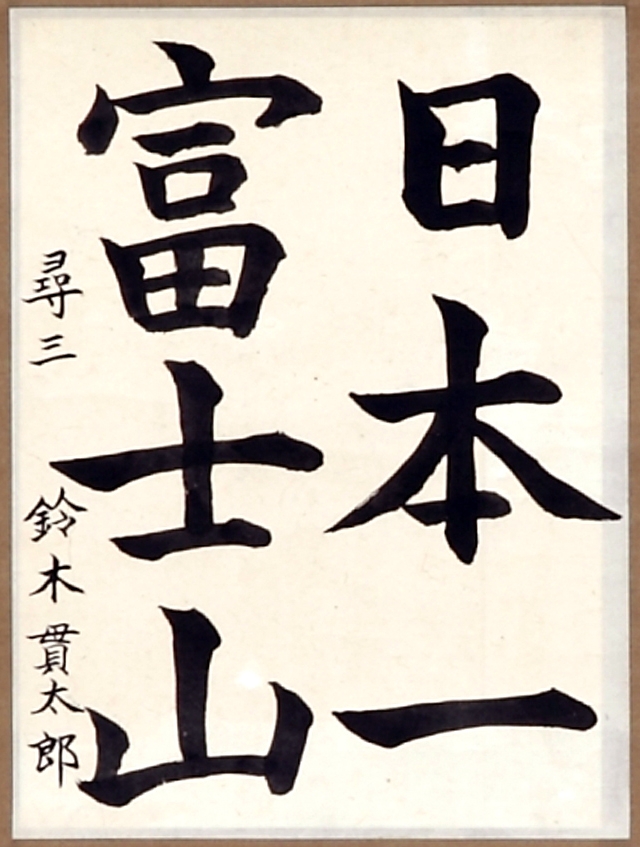 日本一
富士山
尋三 鈴木貫太郎